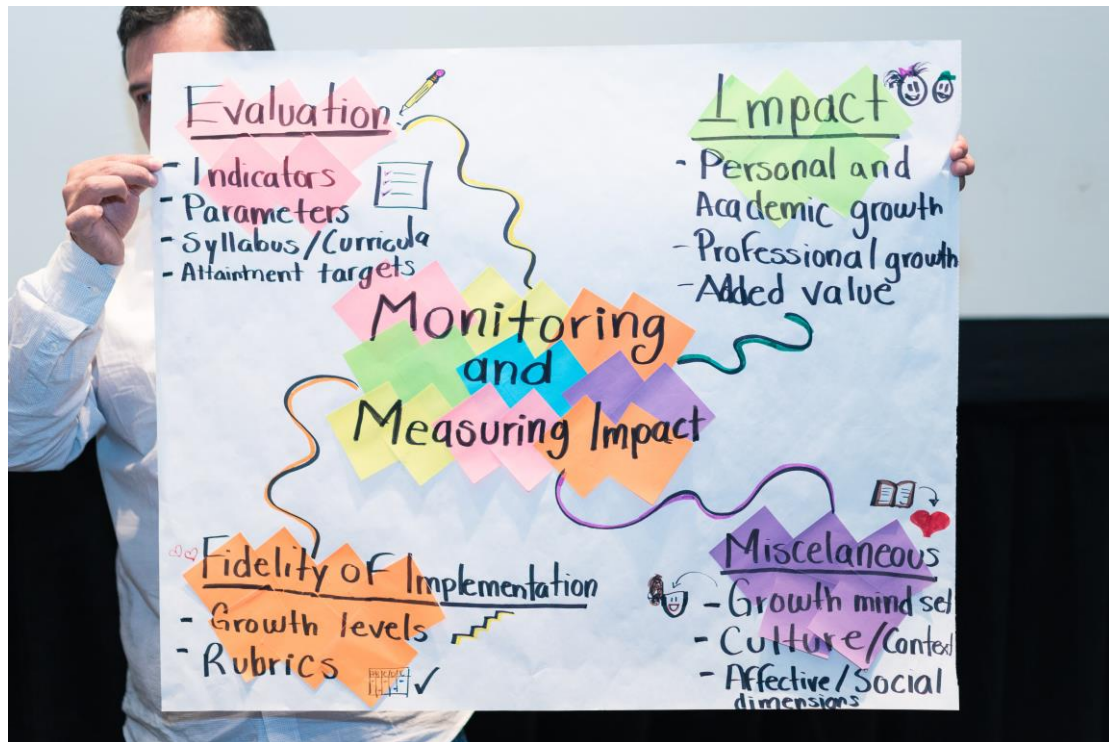 Evaluation
- Indicators
- Parameters
- Syllabus/Curricula
- Attainment targets
Impact
- Personal and
Academic growth
- Professional growth
- Added value
Monitoring
and
Measuring Impact
Fidelity of Implementation
- Growth levels
- Rubrics
Miscelaneous
- Growth mind set
- Culture/Context
- Affective/Social
dimensions